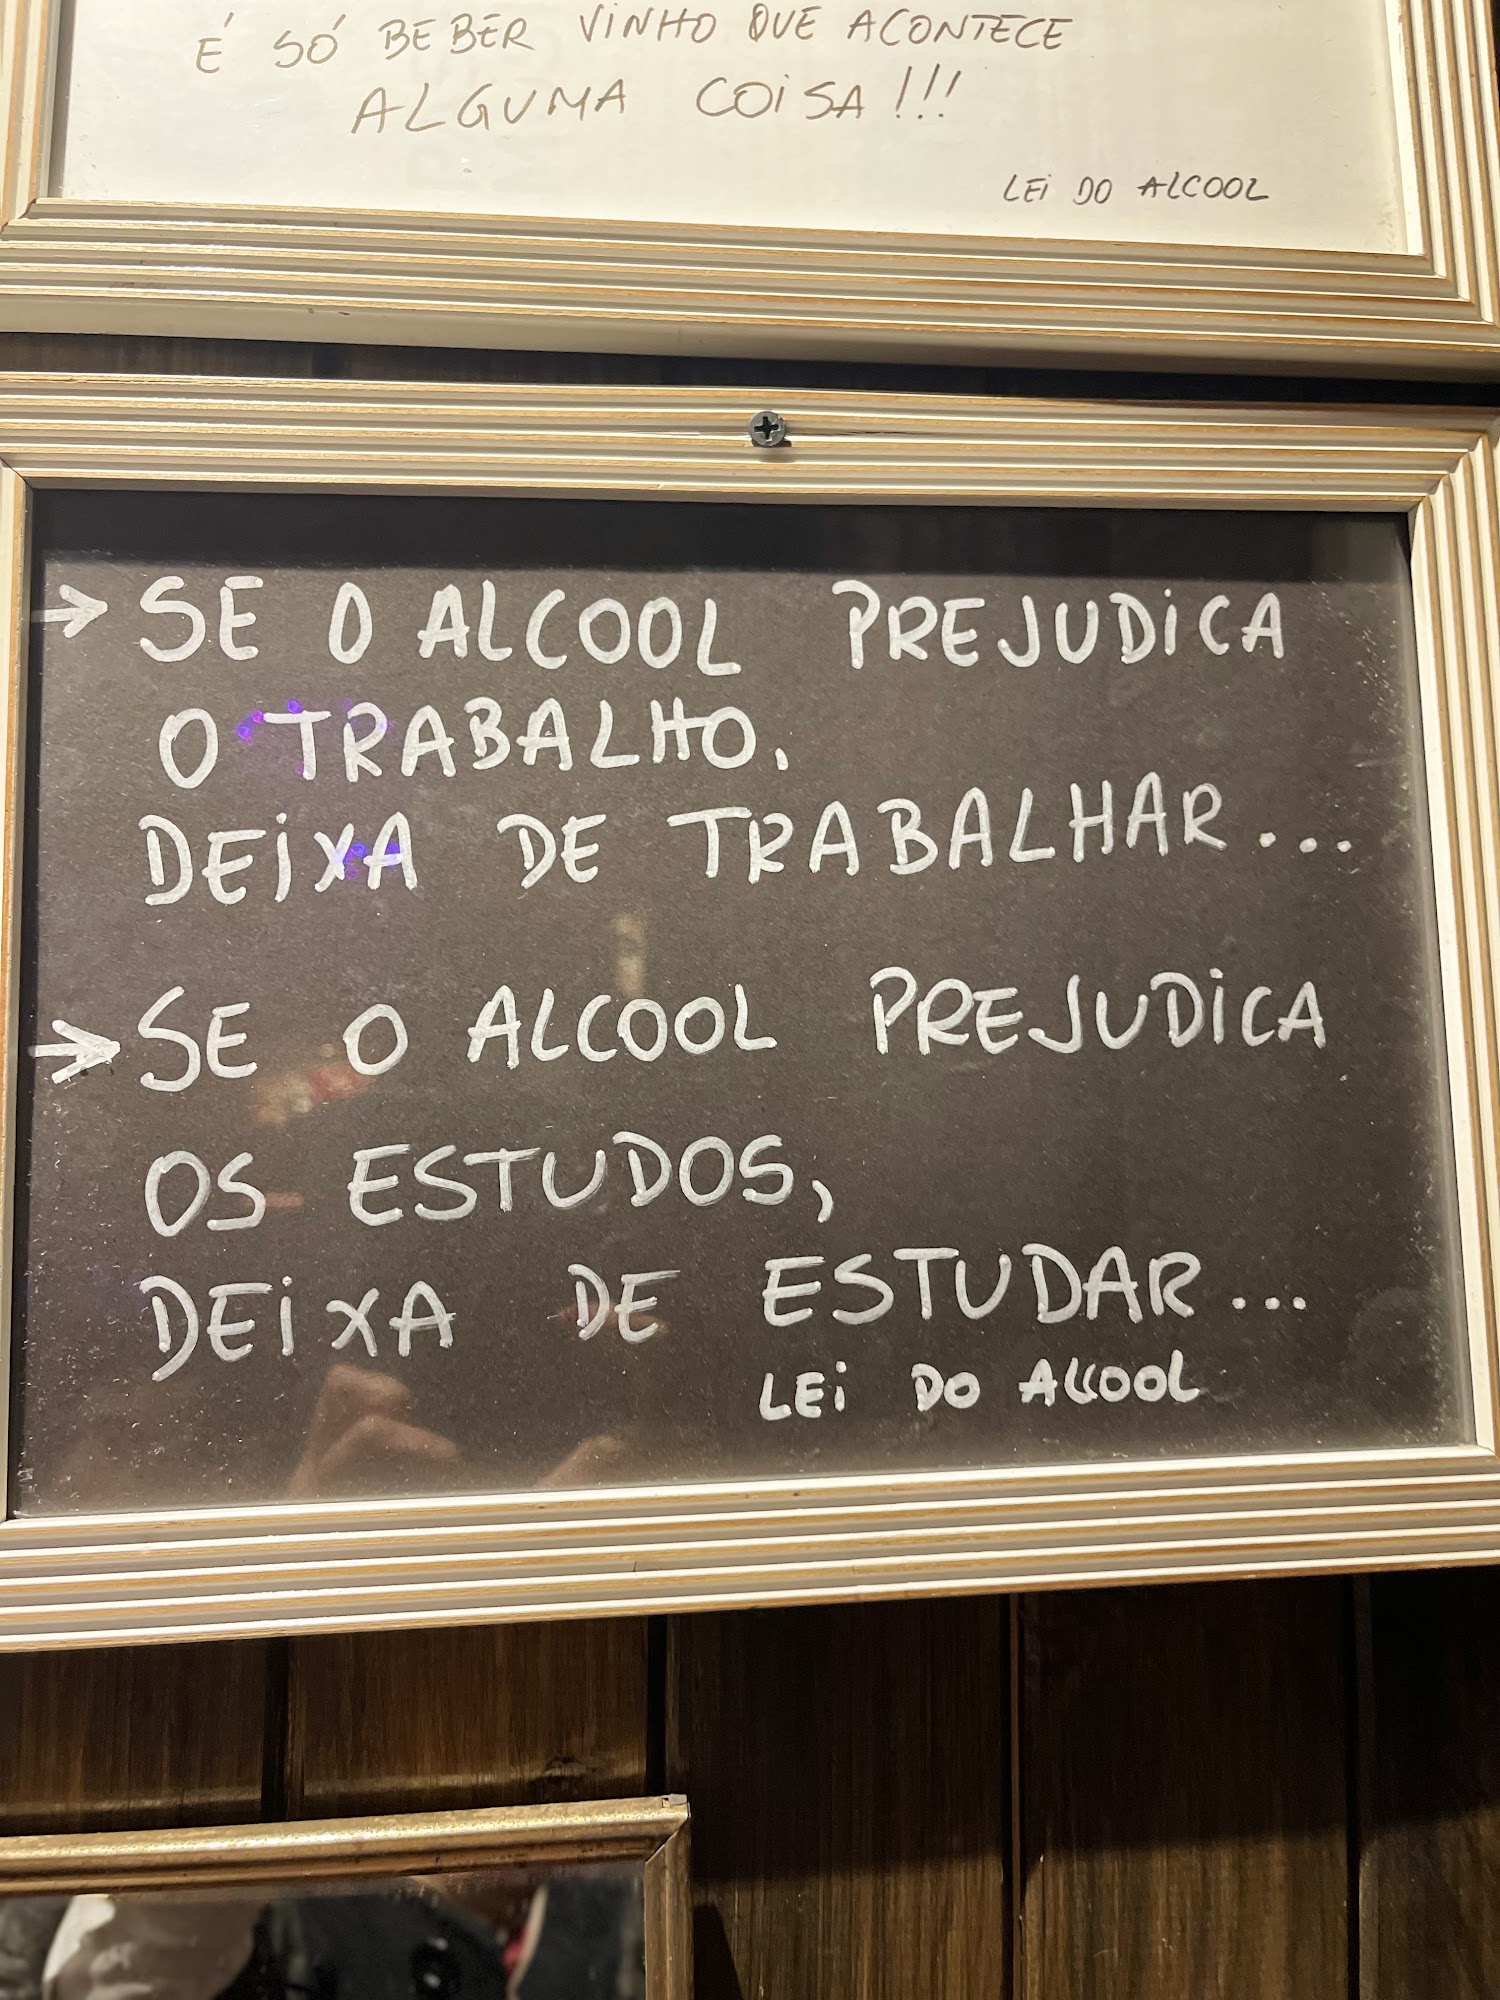 É SÓ BEBER VINHO QUE ACONTECE
ALGUMA COISA!!!
LEI DO ALCOOL
→ SE O ALCOOL PREJUDICA
O TRABALHO.
DEIXA DE TRABALHAR...
→ SE O ALCOOL PREJUDICA
OS ESTUDOS,
DEIXA DE ESTUDAR...
LEI DO ALCOOL